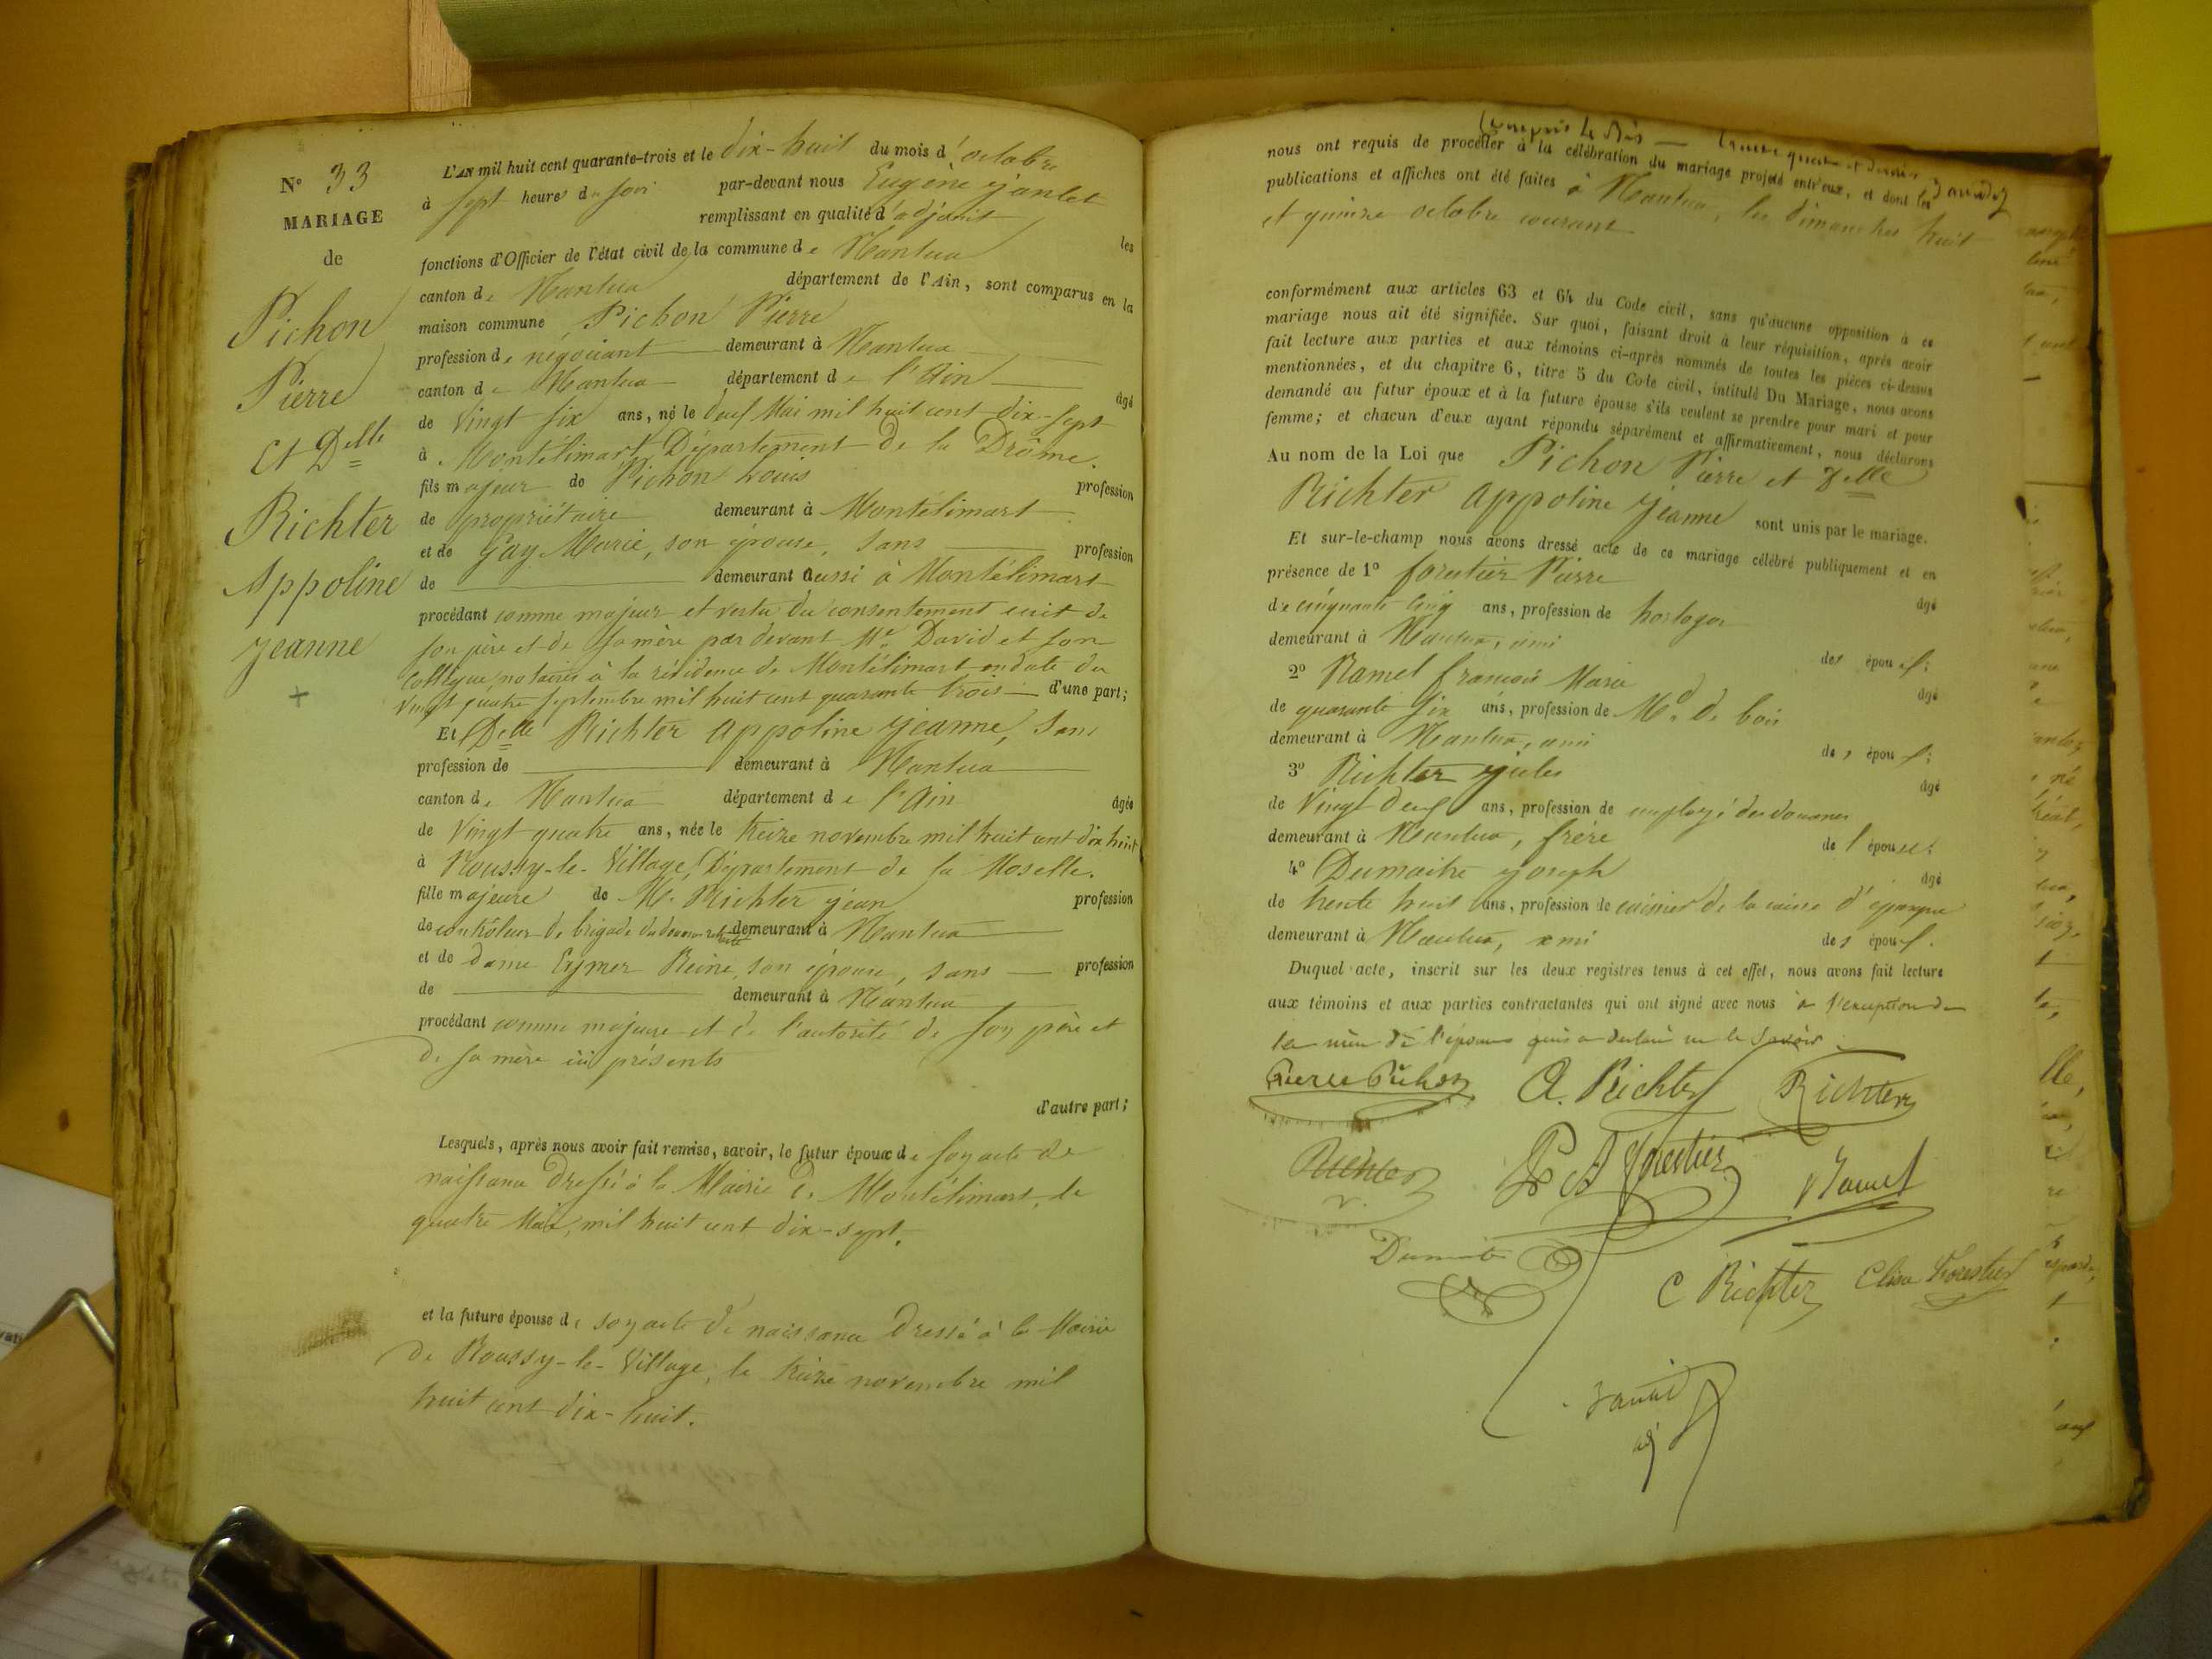 N° 33
MARIAGE
de
Pichon
Pierre
Et Delle
Richter
Appoline
Jeanne
L'AN mil huit cent quarante-trois et le dix-huit du mois d'octobre
à sept heures du soir par-devant nous Eugène Janlet
remplissant en qualité d'adjoint les
fonctions d'Officier de l'état civil de la commune de Nantua
canton de Nantua département de l'Ain, sont comparus en la
maison commune Pichon Pierre
profession de négociant demeurant à Nantua
canton de Nantua département de l'Ain âgé
de vingt six ans, né le deux Mai mil huit cent dix-sept
à Montélimart Département de la Drôme.
fils majeur de Pichon Louis profession
de propriétaire demeurant à Montélimart
et de Gay Marie, son épouse, sans profession
de demeurant aussi à Montélimart
procédant comme majeur et vertu du consentement écrit de
son père et de sa mère par devant Me David et son
collègue, notaires à la résidence de Montélimart en date du
vingt quatre septembre mil huit cent quarante trois d'une part;
Et Delle Richter Appoline Jeanne, sans
profession de demeurant à Nantua
canton de Nantua département de l'Ain âgée
de vingt quatre ans, née le treize novembre mil huit cent dix huit
à Roussy-le-Village, Département de la Moselle.
fille majeure de Mr. Richter jean profession
de contrôleur de brigade des douanes retraité demeurant à Nantua
et de dame Eymer Reine, son épouse, sans profession
de demeurant à Nantua
procédant comme majeure et de l'autorité de son père et
de sa mère ici présents
d'autre part;
Lesquels, après nous avoir fait remise, savoir, le futur époux de son acte de
naissance dressé à la Mairie de Montélimart, le
quatre Mai, mil huit cent dix-sept.
et la future épouse de son acte de naissance dressé à la Mairie
de Roussy-le-Village, le treize novembre mil
huit cent dix-huit.
nous ont requis de procéder à la célébration du mariage projeté entr'eux, et dont les
publications et affiches ont été faites à Nantua, les dimanches huit
et quinze octobre courant
conformément aux articles 63 et 64 du Code civil, sans qu'aucune opposition à ce
mariage nous ait été signifiée. Sur quoi, faisant droit à leur réquisition, après avoir
fait lecture aux parties et aux témoins ci-après nommés de toutes les pièces ci-dessus
mentionnées, et du chapitre 6, titre 5 du Code civil, intitulé Du Mariage, nous avons
demandé au futur époux et à la future épouse s'ils veulent se prendre pour mari et pour
femme; et chacun d'eux ayant répondu séparément et affirmativement, nous déclarons
Au nom de la Loi que Pichon Pierre et Delle
Richter Appoline Jeanne sont unis par le mariage.
Et sur-le-champ nous avons dressé acte de ce mariage célébré publiquement et en
présence de 1° forestier Pierre âgé
de cinquante cinq ans, profession de horloger
demeurant à Nantua, ami des époux;
2° Ramel françois Marie âgé
de quarante six ans, profession de Md. de bois
demeurant à Nantua, ami des époux;
3° Richter jules âgé
de vingt deux ans, profession de employé des douanes
demeurant à Nantua, frère de l'épouse;
4° Dumaitre joseph âgé
de trente huit ans, profession de caissier de la caisse d'épargne
demeurant à Nantua, ami des époux.
Duquel acte, inscrit sur les deux registres tenus à cet effet, nous avons fait lecture
aux témoins et aux parties contractantes qui ont signé avec nous à l'exception de
la mère de l'épouse qui a déclaré ne le savoir
Pierre Pichon A. Richter Richter
Richter Forestier Ramel
C Richter Elisa Forestier
adj